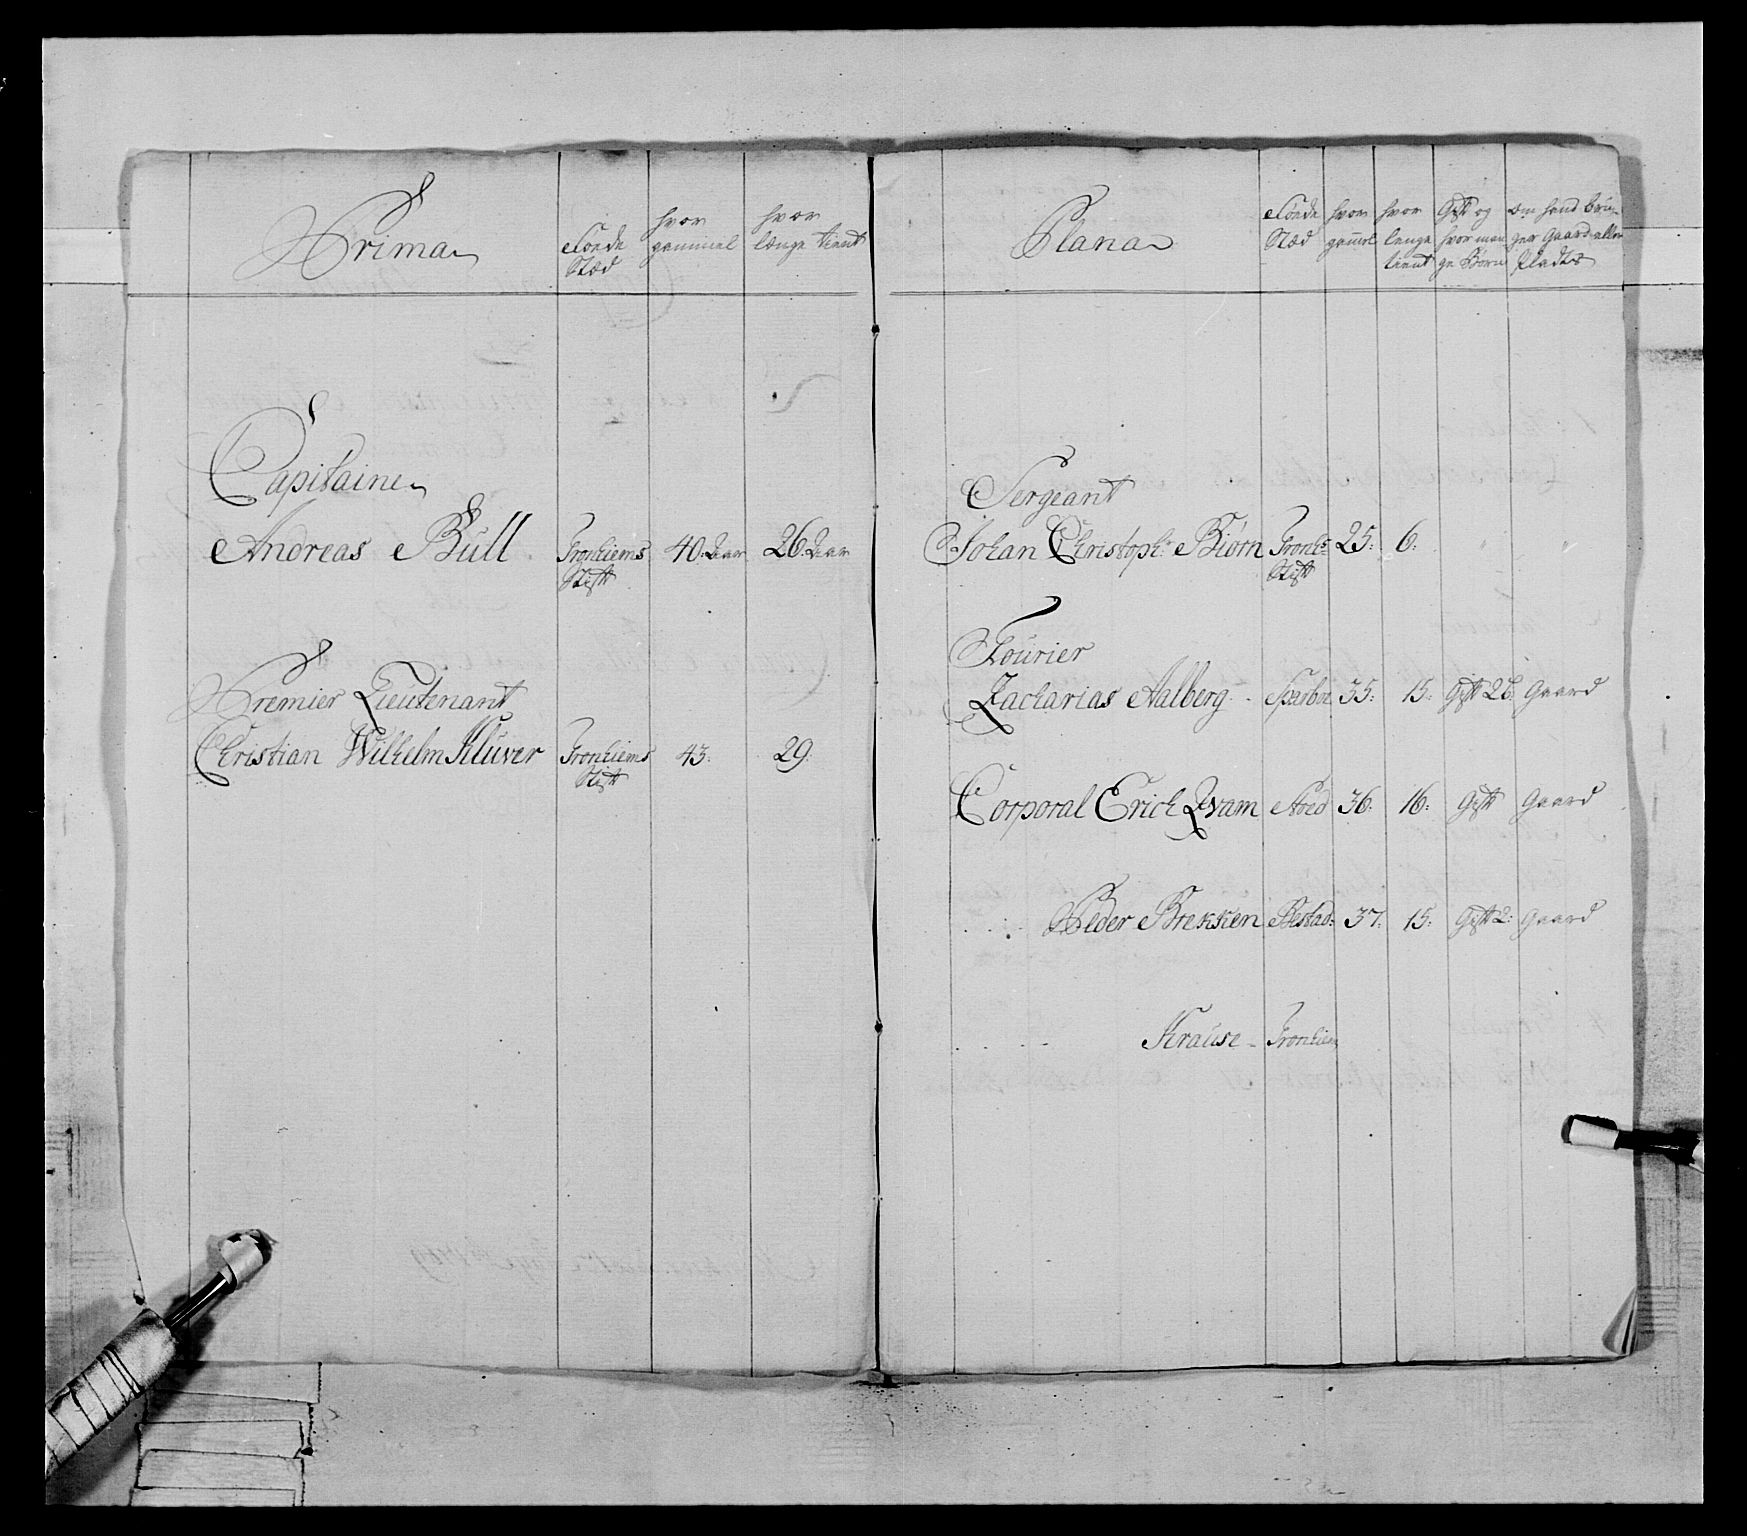 Prima
Føede Stæd
hvor gammel
hvor længe tient
Capitaine
Andreas Bull Tronhiems Stift 40. Aar 26. Aar
Premier Lieutenant
Christian Wilhelm Klüver Tronhiems Stift 43: 29:
Plana
Føede Stæd
hvor gam̄el
hvor lenge tient
Gift og hvor man ge Børn
om hand bru ger Gaard eller Plads
Sergeant
Johan Christoph: Biørn Tronh: Stift 25: 6: " "
Fourier
Zacharias Aalberg Sparboe 35: 15: Gift 2 b: Gaard
Corporal Erich Qvam 36: 16: Gift Gaard
Peder Brekken Bestad: 37: 15: Gift 2: Gaard
Krause Tronhiem